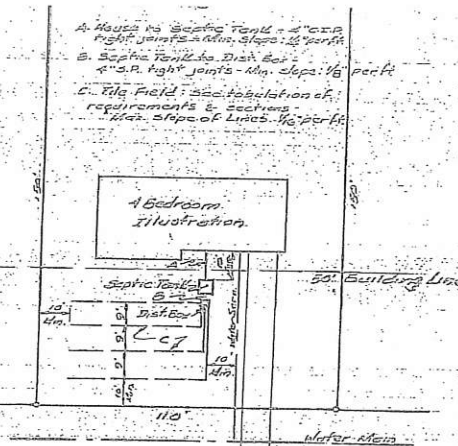 A. House to Septic Tank = 4" C.I.P.
tight joints - Min. Slope: 1/4" per ft
B. Septic Tank to Dist. Box -
4" S.P. tight joints - Min. Slope: 1/8" per ft
C. Tile Field: See tabulation of
requirements & sections -
Max. Slope of Lines 1/16" per ft
150'
150'
4 Bedroom
Illustration.
A
Septic Tank
B
50' Building Line
Dist Box
10'
Min.
9'
9'
C
10'
Min.
10'
Min.
Water Serv.
110'
Water Main